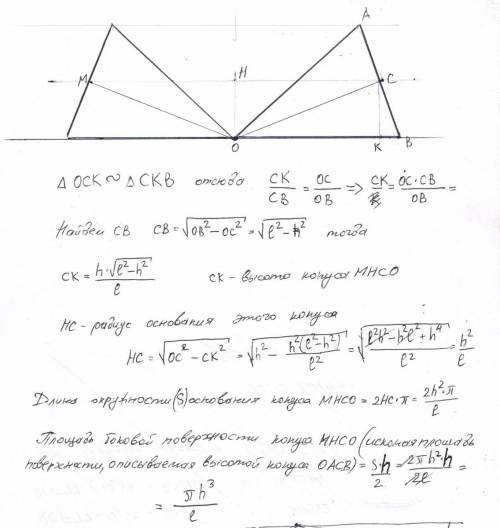 A
M
H
C
O
K
B
Δ OCK ∾ Δ CKB отсюда CK/CB = OC/OB => CK = OC·CB/OB =
Найдем CB CB = √(OB² - OC²) = √(l² - h²) тогда
CK = h·√(l² - h²)/l CK - высота конуса MHCO
HC - радиус основания этого конуса
HC = √(OC² - CK²) = √(h² - h²(l² - h²)/l²) = √((l²h² - h²l² + h⁴)/l²) = h²/l
Длина окружности (S) основания конуса MHCO = 2HC·π = 2h²·π/l
Площадь боковой поверхности конуса MHCO (искомая площадь
поверхности, описываемая высотой конуса OACB) = S·h/2 = 2πh²·h/2l =
= πh³/l